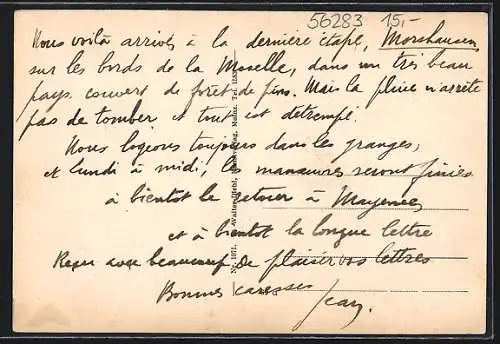 56283 15,-
Nous voilà arrivés à la dernière étape, Morshausen
sur les bords de la Moselle, dans un très beau
pays couvert de forêt de pins. Mais la pluie n'arrête
pas de tomber et tout est détrempé.
Nous logeons toujours dans les granges,
et lundi à midi, les manœuvres seront finies
à bientôt le retour à Mayence
et à bientôt la longue lettre
Reçu avec beaucoup de plaisir vos lettres
Bonnes caresses
Jean.
Nr. 1071. Walter Mainz. Tel.